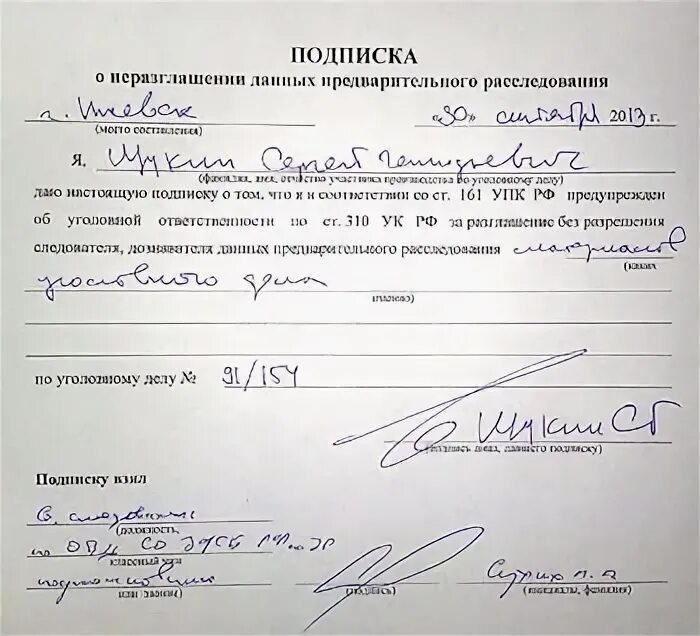 ПОДПИСКА
о неразглашении данных предварительного расследования
г. Ижевск «30» сентября 2013 г.
(место составления)
Я, Щукин Сергей Геннадьевич
(фамилия, имя, отчество участника производства по уголовному делу)
даю настоящую подписку о том, что я в соответствии со ст. 161 УПК РФ предупрежден
об уголовной ответственности по ст. 310 УК РФ за разглашение без разрешения
следователя, дознавателя данных предварительного расследования материалов
(каких
уголовного дела
именно)
по уголовному делу № 91/154
Щукин СГ
(подпись лица, давшего подписку)
Подписку взял
(должность,
по ОВД СО
классный чин
или звание) (подпись) (инициалы, фамилия)